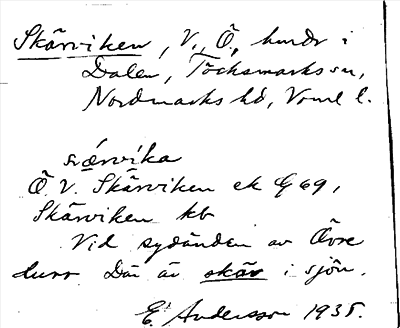 Skärviken, V., Ö, hmdr i
Dalen, Töcksmarks sn,
Nordmarks hd, Vrml l.
Ö. V. Skärviken ek G 69,
Skärviken kb
Vid sydänden av Övre
Där är skär i sjön.
E. Andersson 1935.